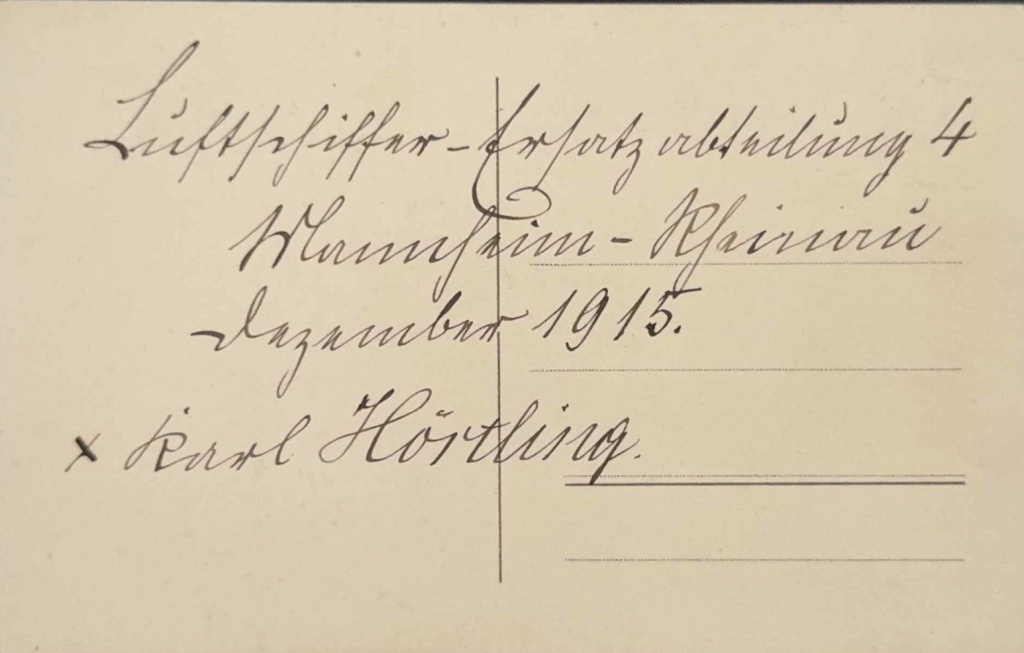 Luftschiffer-Ersatzabteilung 4
Mannheim-Rheinau
Dezember 1915.
x Karl Hörtling.